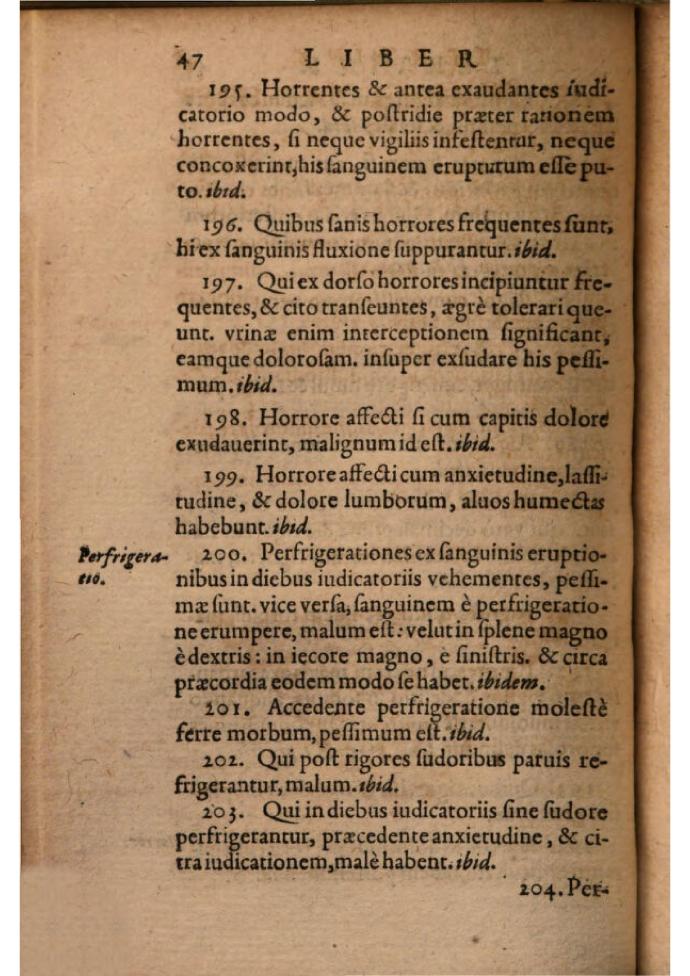 47 LIBER
195. Horrentes & antea exaudantes iudi-
catorio modo, & poſtridie præter rationem
horrentes, ſi neque vigiliis infeſtentur, neque
concoxerint, his ſanguinem erupturum eſſe pu-
to. ibid.
196. Quibus ſanis horrores frequentes ſunt,
hi ex ſanguinis fluxione ſuppurantur. ibid.
197. Qui ex dorſo horrores incipiuntur fre-
quentes, & cito tranſeuntes, ægrè tolerari que-
unt. vrinæ enim interceptionem ſignificant,
eamque doloroſam. inſuper exſudare his peſſi-
mum. ibid.
198. Horrore affecti ſi cum capitis dolore
exudauerint, malignum id eſt. ibid.
199. Horrore affecti cum anxietudine, laſſi-
tudine, & dolore lumborum, aluos humectas
habebunt. ibid.
Perfrigera-
tio.
200. Perfrigerationes ex ſanguinis eruptio-
nibus in diebus iudicatoriis vehementes, peſſi-
mæ ſunt. vice verſa, ſanguinem è perfrigeratio-
ne erumpere, malum eſt: velut in ſplene magno
è dextris: in iecore magno, e ſiniſtris. & circa
præcordia eodem modo ſe habet. ibidem.
201. Accedente perfrigeratione moleſtè
ferre morbum, peſſimum eſt. ibid.
202. Qui poſt rigores ſudoribus paruis re-
frigerantur, malum. ibid.
203. Qui in diebus iudicatoriis ſine ſudore
perfrigerantur, præcedente anxietudine, & ci-
tra iudicationem, malè habent. ibid.
204. Per-